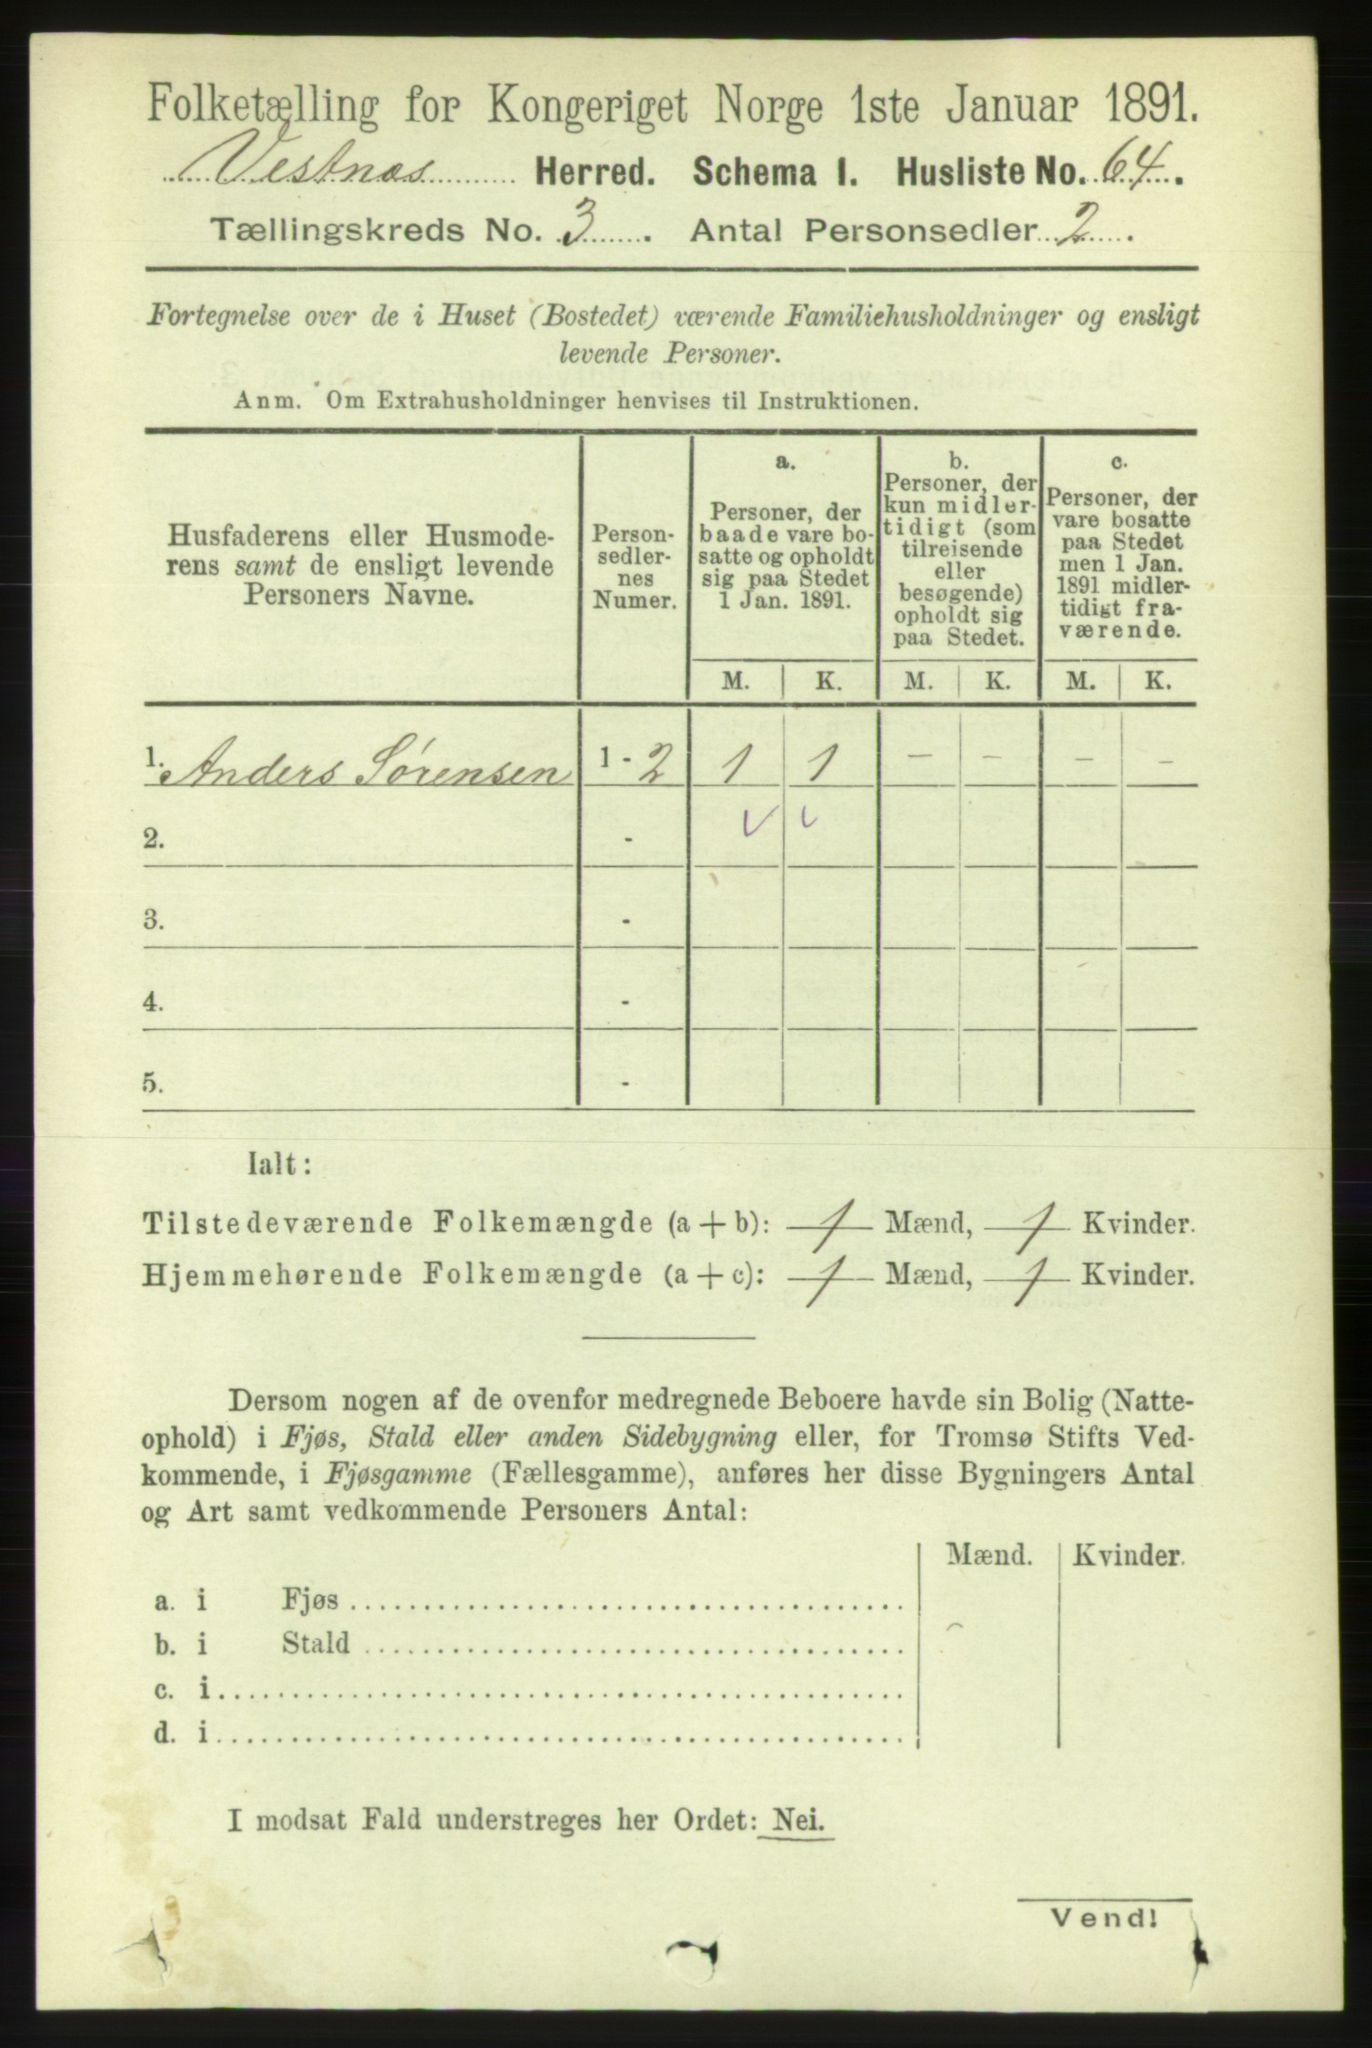 Folketælling for Kongeriget Norge 1ste Januar 1891.
Vestnæs Herred. Schema I. Husliste No. 64.
Tællingskreds No. 3. Antal Personsedler 2.
Fortegnelse over de i Huset (Bostedet) værende Familiehusholdninger og ensligt
levende Personer.
Anm. Om Extrahusholdninger henvises til Instruktionen.
Husfaderens eller Husmode-
rens samt de ensligt levende
Personers Navne.
Person-
sedler-
nes
Numer.
a.
Personer, der
baade vare bo-
satte og opholdt
sig paa Stedet
1 Jan. 1891.
b.
Personer, der
kun midler-
tidigt (som
tilreisende
eller
besøgende)
opholdt sig
paa Stedet.
c.
Personer, der
vare bosatte
paa Stedet
men 1 Jan.
1891 midler-
tidigt fra-
værende.
M. K. M. K. M. K.
1. Anders Sørensen 1 - 2 1 1 - - - -
2. -
3. -
4. -
5. -
Ialt:
Tilstedeværende Folkemængde (a + b): 1 Mænd, 1 Kvinder.
Hjemmehørende Folkemængde (a + c): 1 Mænd, 1 Kvinder.
Dersom nogen af de ovenfor medregnede Beboere havde sin Bolig (Natte-
ophold) i Fjøs, Stald eller anden Sidebygning eller, for Tromsø Stifts Ved-
kommende, i Fjøsgamme (Fællesgamme), anføres her disse Bygningers Antal
og Art samt vedkommende Personers Antal:
Mænd. Kvinder.
a. i Fjøs
b. i Stald
c. i
d. i
I modsat Fald understreges her Ordet: Nei.
Vend!